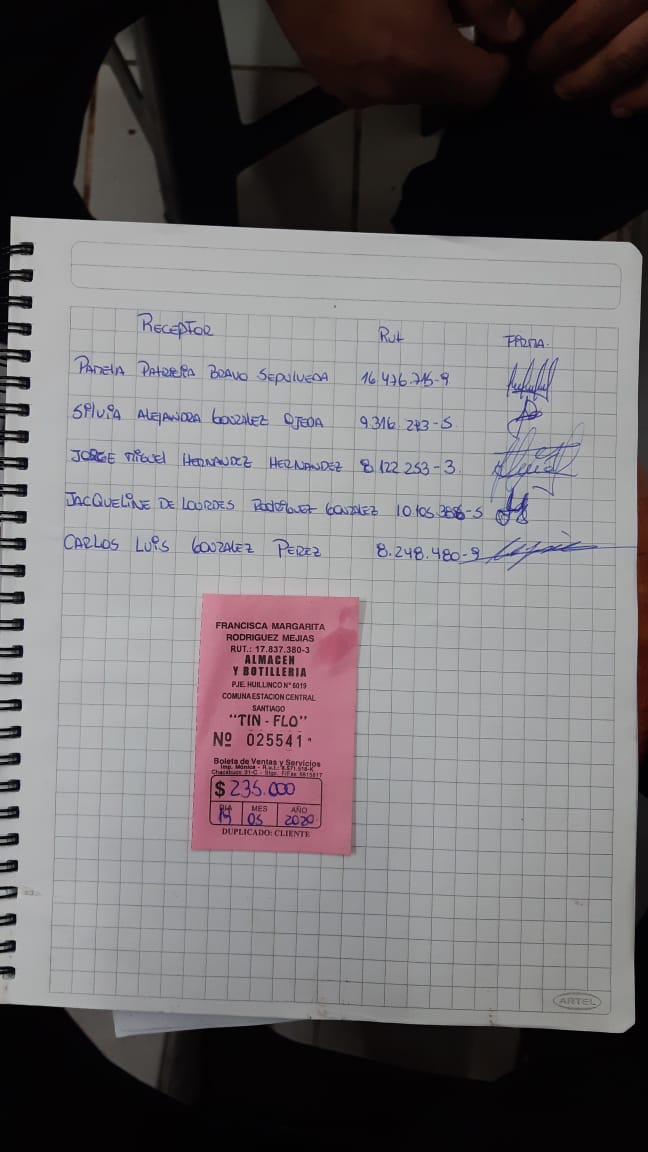 RECEPTOR Rut FIRMA.
PAMELA PATRICIA BRAVO SEPULVEDA 16.476.715-9
SILVIA ALEJANDRA GONZALEZ OJEDA 9.316.293-5
JORGE MIGUEL HERNANDEZ HERNANDEZ 8.122.253-3
JACQUELINE DE LOURDES RODRIGUEZ GONZALEZ
CARLOS LUIS GONZALEZ PEREZ 8.248.480-9
FRANCISCA MARGARITA
RODRIGUEZ MEJIAS
RUT.: 17.837.380-3
ALMACEN
Y BOTILLERIA
PJE. HUILLINCO Nº 6019
COMUNA ESTACION CENTRAL
SANTIAGO
"TIN - FLO"
Nº 025541
Boleta de Ventas y Servicios
$ 235.000
DIA MES AÑO
19 05 2020
DUPLICADO: CLIENTE
ARTEL